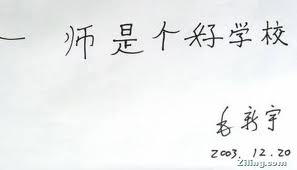 一师是个好学校
毛新宇
2003.12.20
Ziling.com